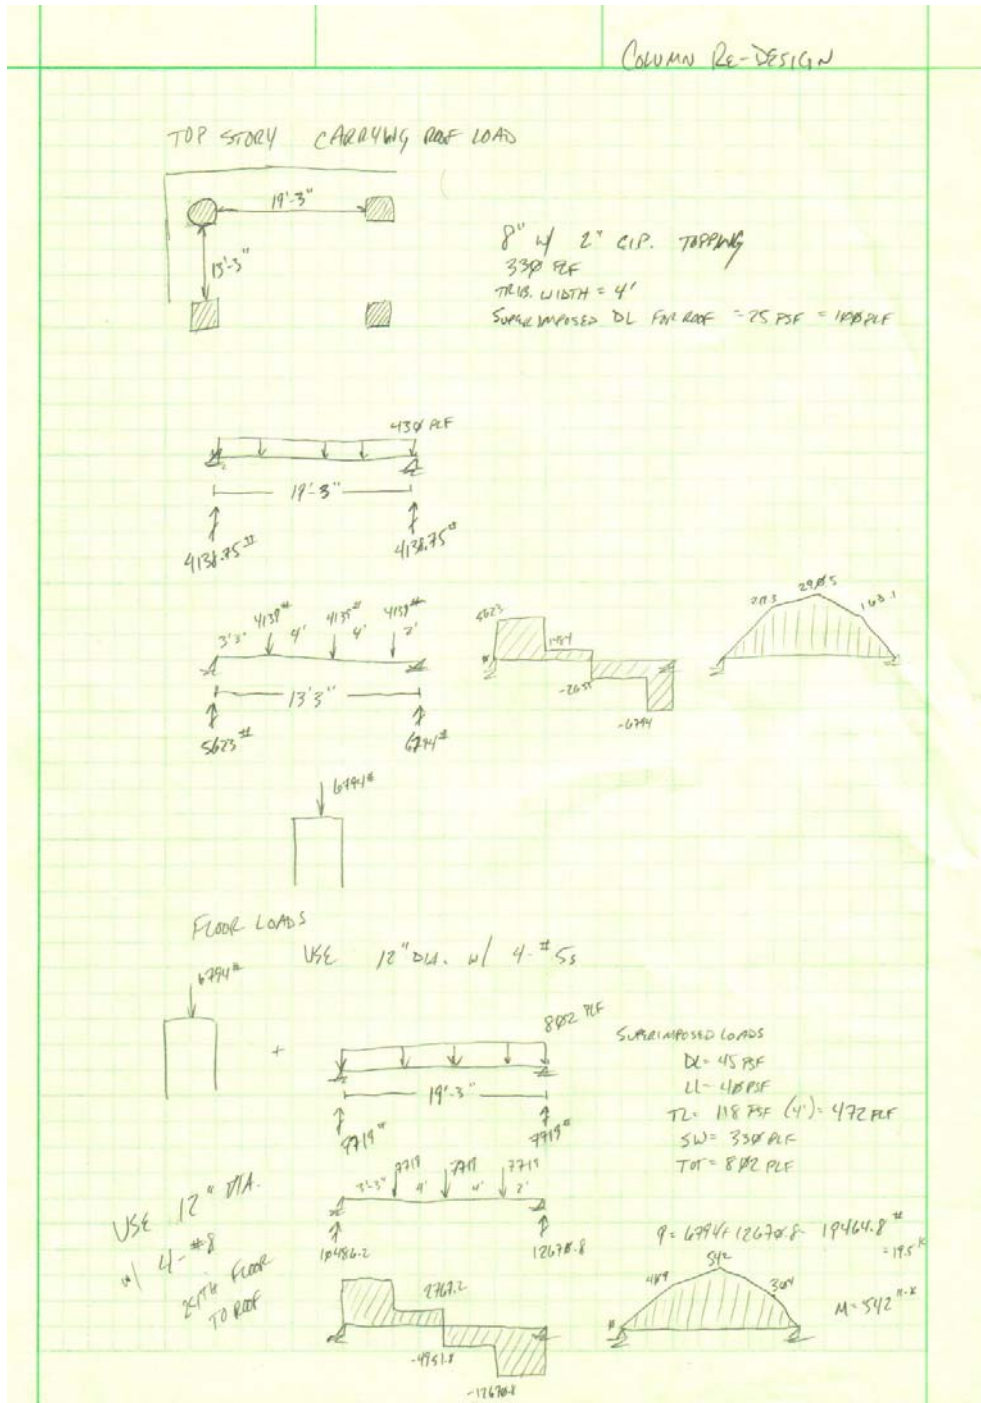 COLUMN RE-DESIGN
TOP STORY CARRYING ROOF LOAD
19'-3"
13'-3"
8" w/ 2" C.I.P. TOPPING
330 PLF
TRIB. WIDTH = 4'
SUPERIMPOSED DL FOR ROOF = 25 PSF = 100 PLF
430 PLF
19'-3"
4138.75#
4138.75#
3'3" 4139# 4' 4139# 4' 4139# 2'
13'3"
5623#
6794#
5623
1484
-2655
-6794
290.5
163.1
6794#
FLOOR LOADS
USE 12" DIA. w/ 4-#5s
6794#
+
802 PLF
19'-3"
7719#
7719#
SUPERIMPOSED LOADS
DL = 45 PSF
LL = 40 PSF
TL = 118 PSF (4') = 472 PLF
SW = 330 PLF
TOT = 802 PLF
3'-3" 7719 4' 7719 4' 7719 2'
10486.2
12670.8
USE 12" DIA.
w/ 4-#8
TO ROOF
P = 6794 + 12670.8 = 19464.8#
= 19.5K
2767.2
-4951.8
-12670.8
409
542
304
M = 542 "-K